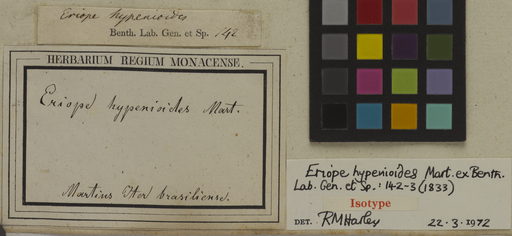 Eriope hypenioides
Benth. Lab. Gen. et Sp. 142
HERBARIUM REGIUM MONACENSE.
Eriope hypenioides Mart.
Martius Iter brasiliense.
Eriope hypenioides Mart. ex Benth.
Lab. Gen. et Sp.: 142-3 (1833)
Isotype
DET. RMHarley 22.3.1972